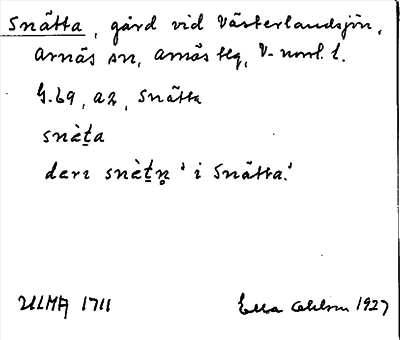 Snätta, gård vid Västerlandsjön,
Arnäs sn, Arnäs tlg, V-norrl. l.
G.69, a2, Snätta
snèt̲a
deri snèt̲n̥ 'i Snätta.'
ULMA 1711 Ella Ohlson 1927